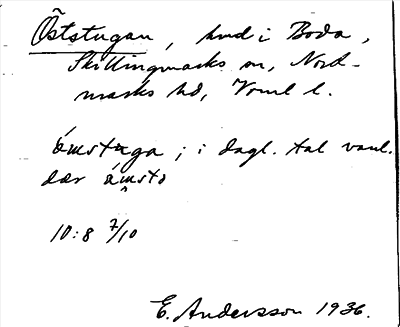 Öststugan, hmd i Boda,
Skillingmarks sn, Nord-
marks hd, Vrml l.
ámstuga ; i dagl. tal vanl.
dær ámsto
10:8 7/10
E. Andersson 1936.